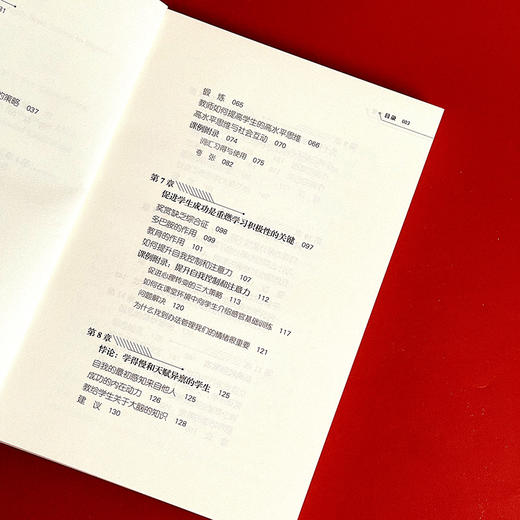 031
的策略
037
目录 003
锻 炼 065
教师如何提高学生的高水平思维 066
高水平思维与社会互动 070
课例附录 074
词汇习得与使用 075
夸 张 082
第 7 章
促进学生成功是重燃学习积极性的关键 097
奖赏缺乏综合征 098
多巴胺的作用 099
教育的作用 101
如何提升自我控制和注意力 107
课例附录：提升自我控制和注意力 112
促进心理转变的三大策略 113
如何在课堂环境中向学生介绍感官基础训练 117
问题解决 121
为什么找到办法管理我们的情绪很重要 121
第 8 章
悖论：学得慢和天赋异禀的学生 125
自我的最初感知来自他人 125
成功的内在动力 126
教给学生关于大脑的知识 128
建 议 130